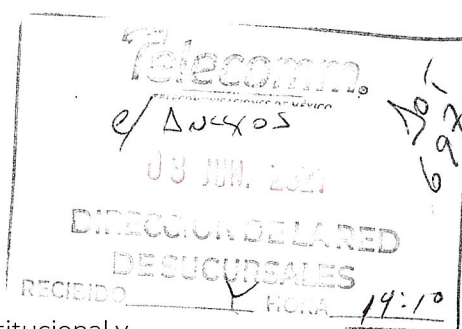 Telecomm.
TELECOMUNICACIONES DE MÉXICO
c/ Anexos
03 JUN. 2021
DIRECCION DE LA RED
DE SUCURSALES
RECIBIDO HORA 14:10
titucional y